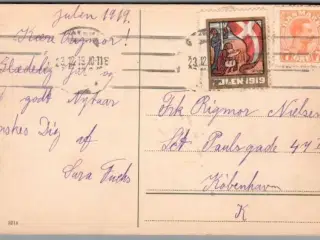 Julen 1919.
Kære Rigmor!
Glædelig Jul og
godt Nytaar
ønskes Dig af
Sara Fuchs
23.12.19.10-11F
JULEN 1919
Frk Rigmor Nielsen
Sct Paulsgade 47
København
K